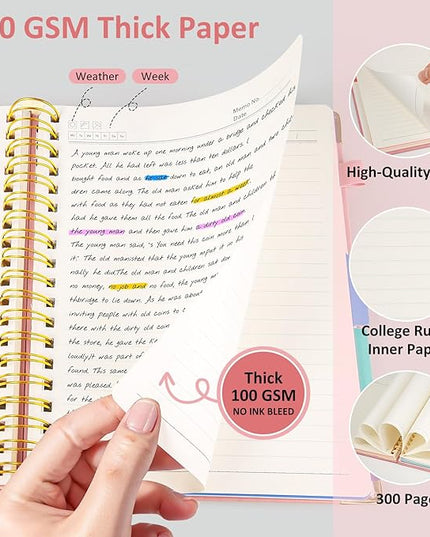 0 GSM Thick Paper
Weather
Week
Memo No.
Date
A young man woke up one morning under a bridge and checked his
pocket. All he had left was less than ten dollars. I
bought food and as he sat down to eat, an old man and two chil
dren came along. The old man asked him to help the
with food as they had not eaten for almost a week.
had he gave them all the food. The old man and children of
the young man and then gave him a dirty old coin
The young man said, 's You need this coin more than I
it'. The old man insisted that the young mput it in his
nally he did.The old man and children sat do
no money, no job and no food, the young m
thbridge to lie down. As he was about
inviting people with old coins to t
there with the dirty old coin
the store, he gave the
loudly.It was part of
found. This same
was pleased.
for the
Thick
100 GSM
NO INK BLEED
High-Quality
College Ru
Inner Pap
300 Page